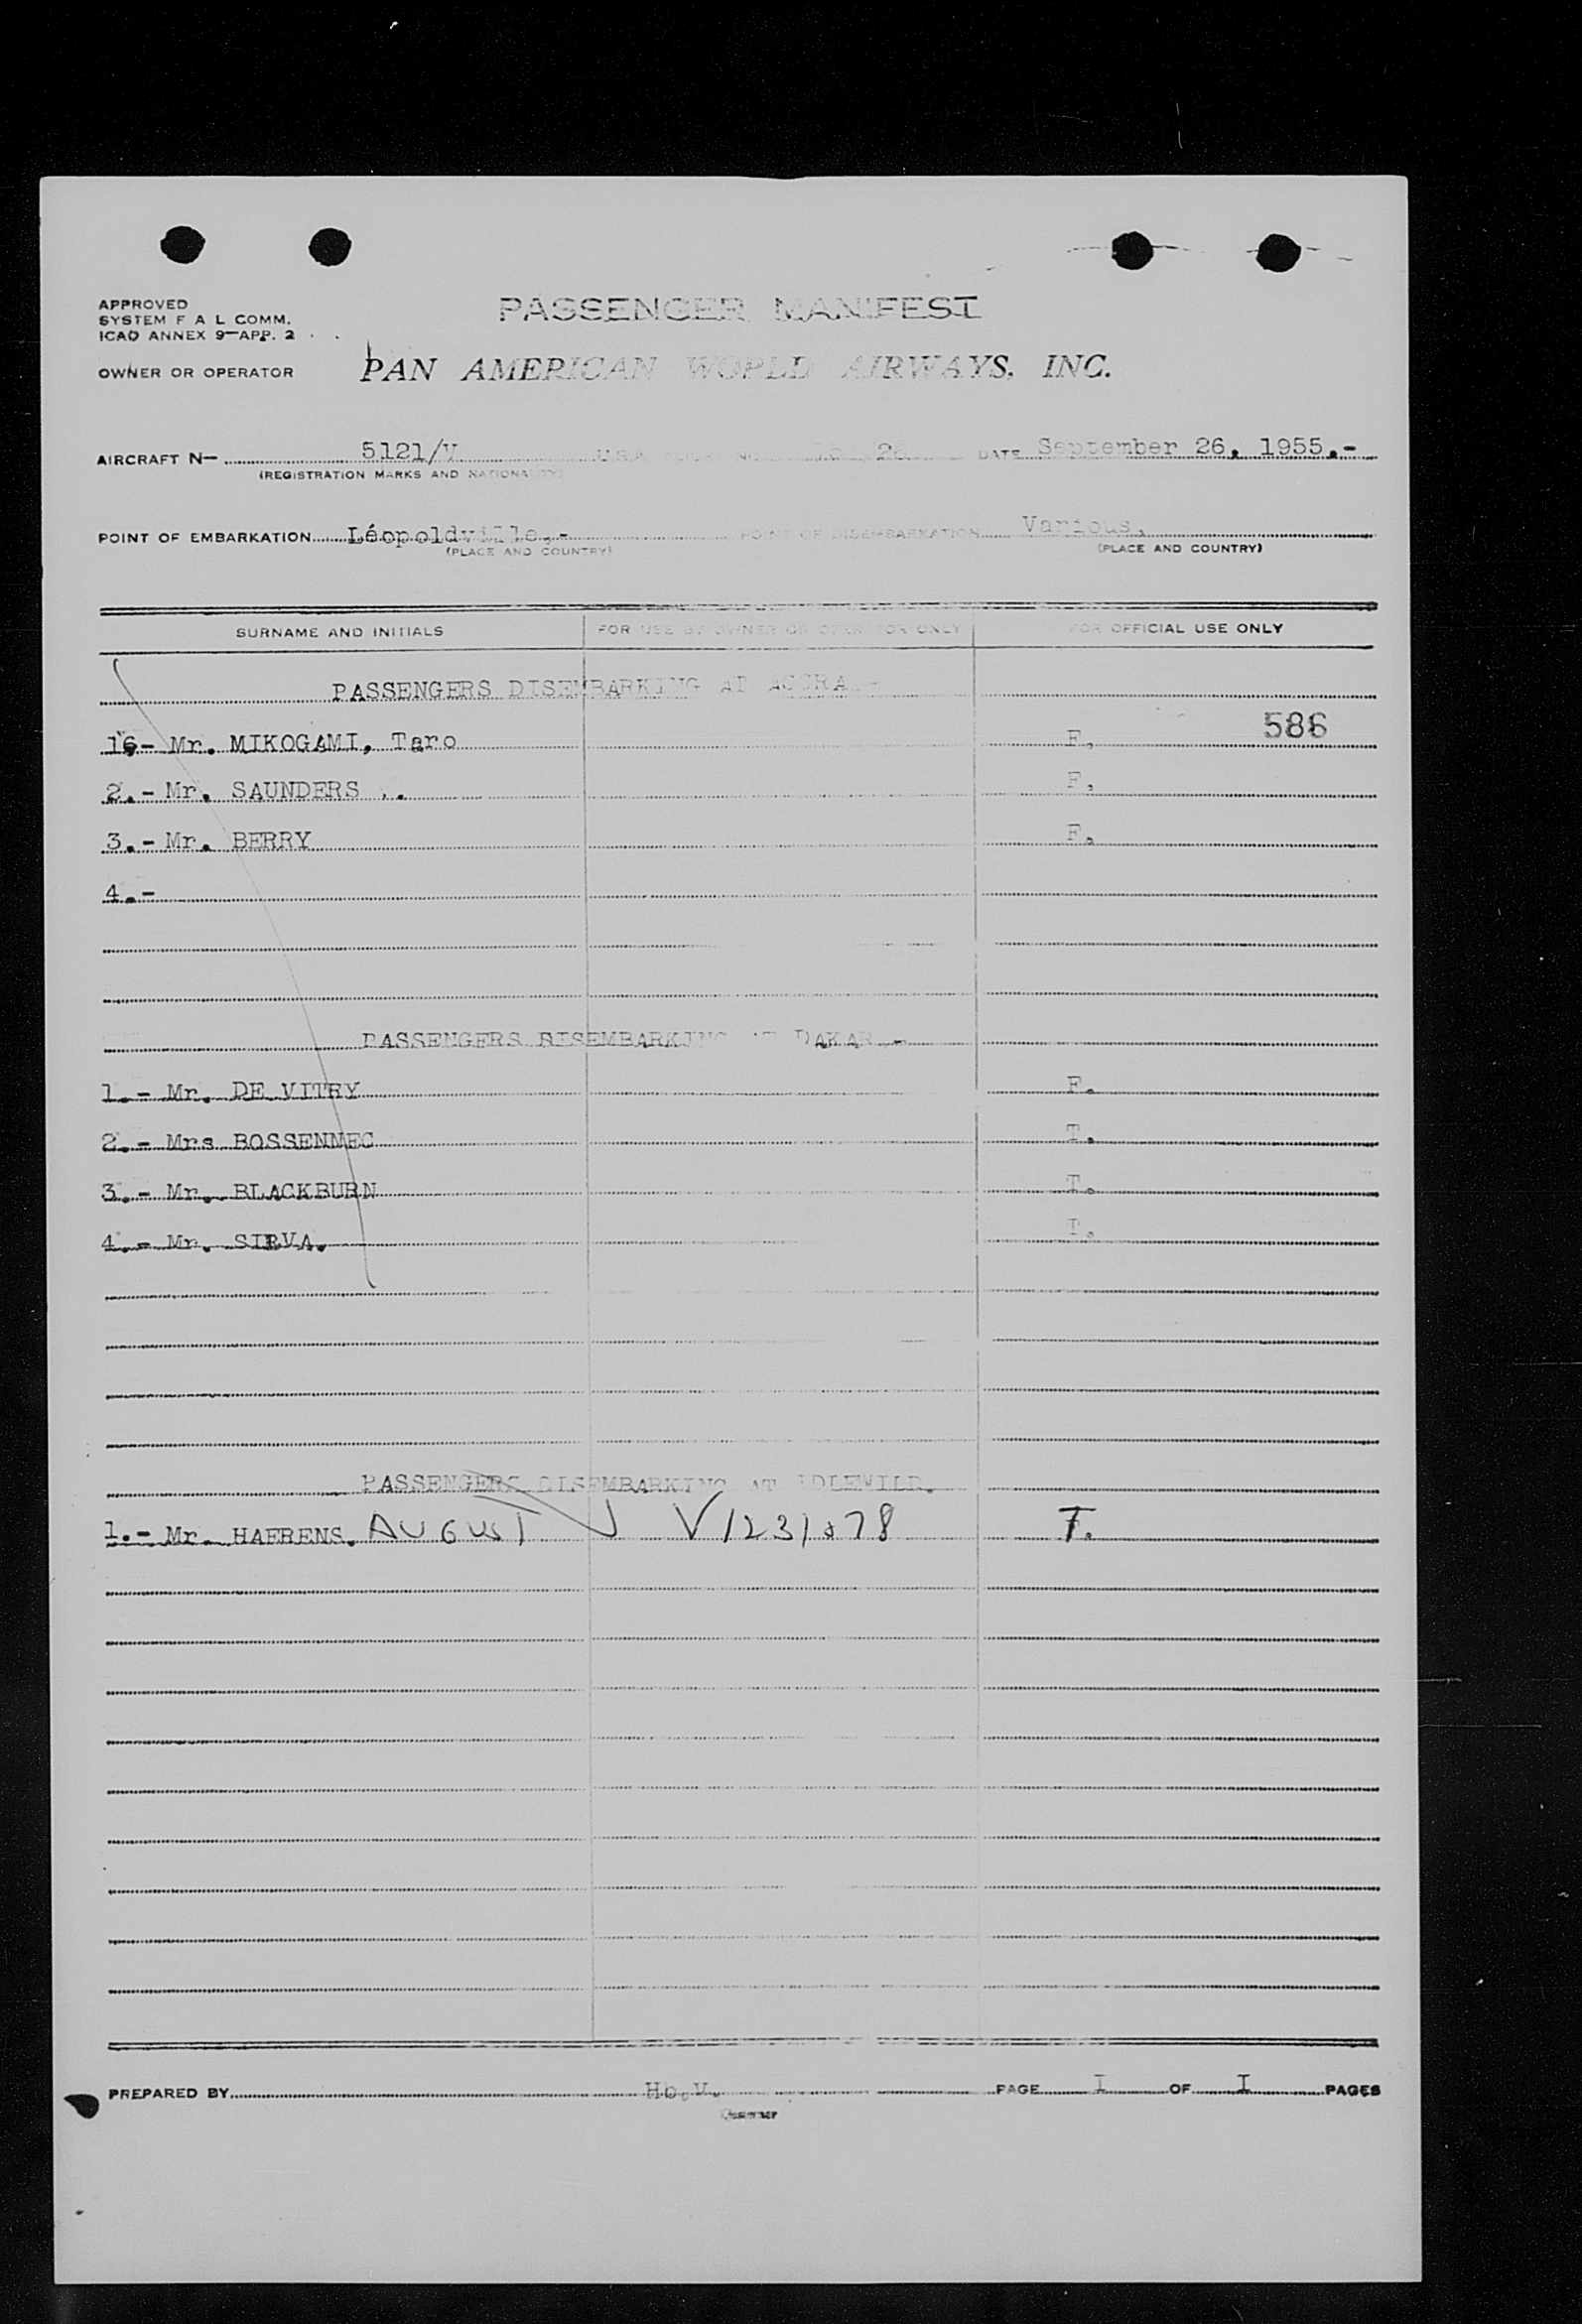 APPROVED
SYSTEM F A L COMM.
ICAO ANNEX 9—APP. 2
PASSENGER MANIFEST
OWNER OR OPERATOR PAN AMERICAN WORLD AIRWAYS, INC.
AIRCRAFT N— 5121/V U.S.A. DATE September 26, 1955.-
(REGISTRATION MARKS AND NATIONALITY)
POINT OF EMBARKATION Léopoldville.- POINT OF DISEMBARKATION Various.
(PLACE AND COUNTRY) (PLACE AND COUNTRY)
SURNAME AND INITIALS FOR USE BY OWNER OR OPERATOR ONLY FOR OFFICIAL USE ONLY
PASSENGERS DISEMBARKING AT ACCRA.-
586
- Mr. MIKOGAMI, Taro F.
2.- Mr. SAUNDERS .. F.
3.- Mr. BERRY F.
4.-
PASSENGERS DISEMBARKING AT DAKAR.-
1.- Mr. DE VITRY F.
2.- Mrs BOSSENMEC T.
3.- Mr. BLACKBURN T.
4.- Mr. T.
PASSENGERS DISEMBARKING AT IDLEWILD.
1.- Mr. HAERENS. AUGUST T.
PREPARED BY Ho.V. PAGE I OF I PAGES